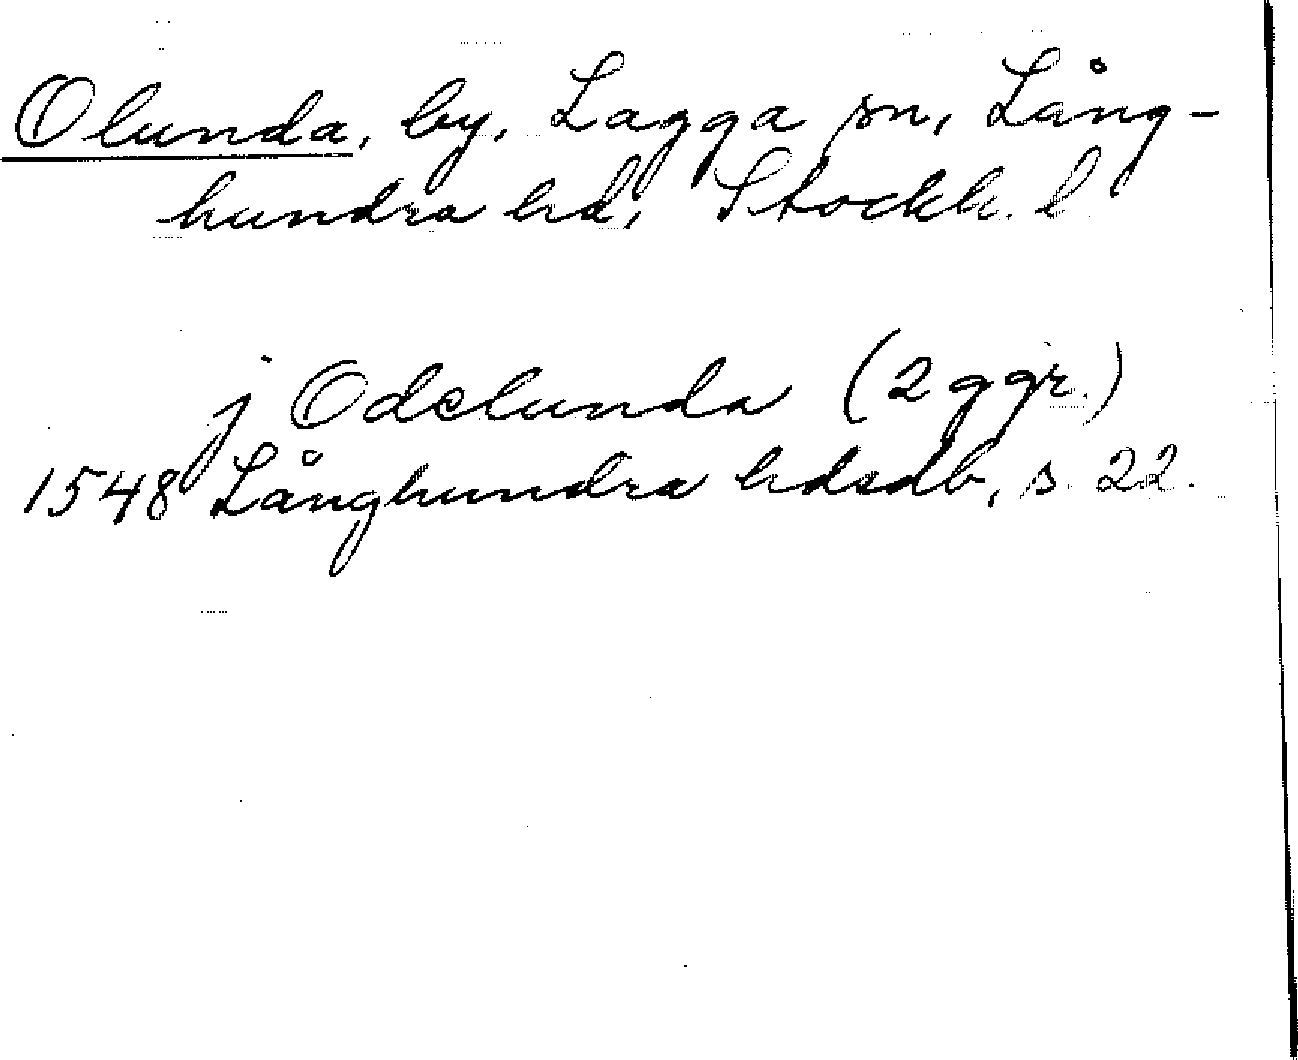 Olunda, by, Lagga sn, Lång-
hundra hd, Stockh. l
j Odelunda (2 ggr.)
1548 Långhundra hdsdb, s. 22.